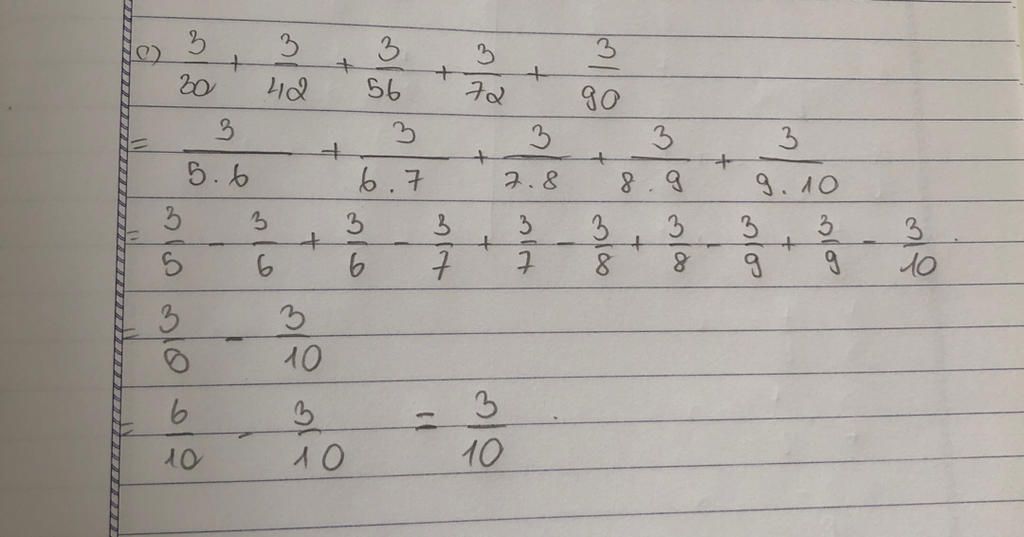 c) 3/30 + 3/42 + 3/56 + 3/72 + 3/90
= 3/5.6 + 3/6.7 + 3/7.8 + 3/8.9 + 3/9.10
= 3/5 - 3/6 + 3/6 - 3/7 + 3/7 - 3/8 + 3/8 - 3/9 + 3/9 - 3/10.
= 3/5 - 3/10
= 6/10 - 3/10 = 3/10.